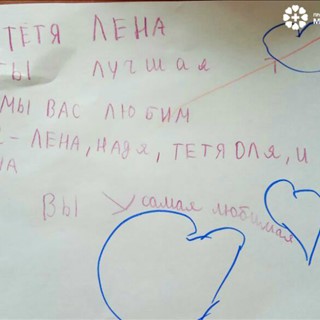 ТЕТЯ ЛЕНА
ТЫ ЛУЧШАЯ
МЫ ВАС ЛЮБИМ
- ЛЕНА, НАДЯ, ТЕТЯ ОЛЯ, И
ВЫ самая любимая